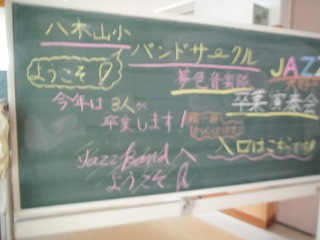 八木山小
バンドサークル
ようこそ
JAZZ
音楽隊
卒業演奏会
今年は3人が
卒業します!
入口はこちらです!
Jazz Bandへ
ようこそ